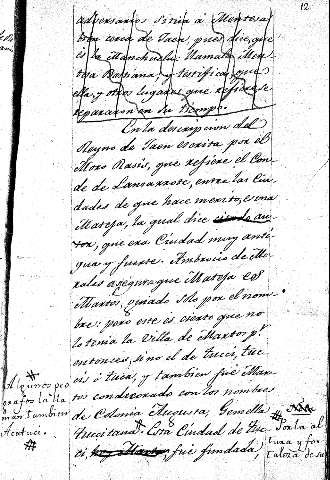 12
adversarios sitia á Mentesa
tan cerca de Jaen, pues dice, que
es la Manchuela llamada Men-
tesa Basiana, y testifica, que
ella, y otros lugares que refiere se
repararon en su tiempo.
En la descripcion del
Reyno de Jaen escrita por el
Moro Rasis, que refiere el Con-
de de Lanzarote, entre las Ciu-
dades de que hace merito, es una
Mateja, la qual dice
que era Ciudad muy anti-
gua y fuerte. Ambrocio de Mo-
rales asegura que Mateja es
Martos, guiado sólo por el nom-
bre: pero este es cierto que no
lo tenia la Villa de Martos pr
entonces, si nó el de Tucci, Tuc-
cis ó Tuca, y tambien fué Mar-
tos condecorado con los nombres
de Colonia Augusta, Gemella
Tuccitana. Esta Ciudad de Tuc-
ci, fue fundada,
Algunos geo
grafos la lla
man tambien
Acatucci.
Por la al
tura y for
taleza de su